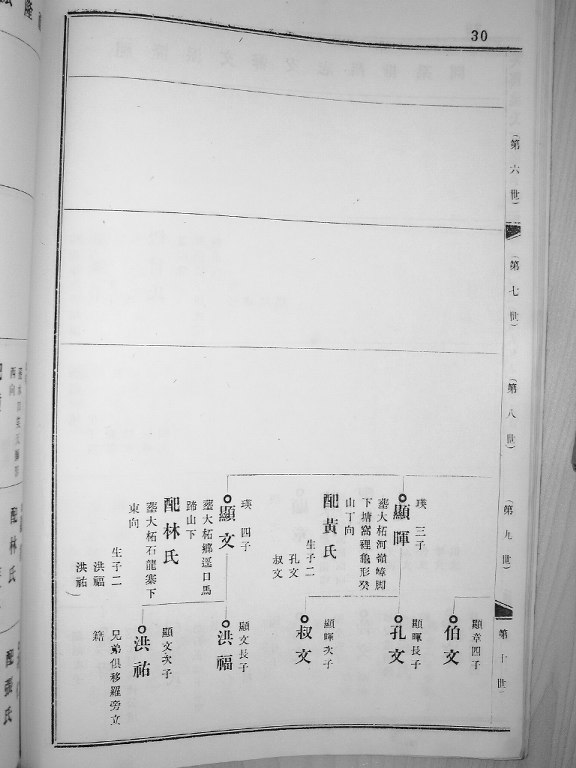 30
(第六世)
(第七世)
(第八世)
(第九世)
第十世)
瑛 三子
顯暉
塟大柘河嶺崠脚
下塘窩裡龜形癸
山丁向
配黃氏
生子二
孔文
叔文
瑛 四子
顯文
塟大柘鄉逕口馬
蹄山下
配林氏
塟大柘石龍寨下
東向
生子二
洪福
洪祐
顯章四子
伯文
顯暉長子
孔文
顯暉次子
叔文
顯文長子
洪福
顯文次子
洪祐
兄弟俱移羅旁立
籍
配林氏
配張氏